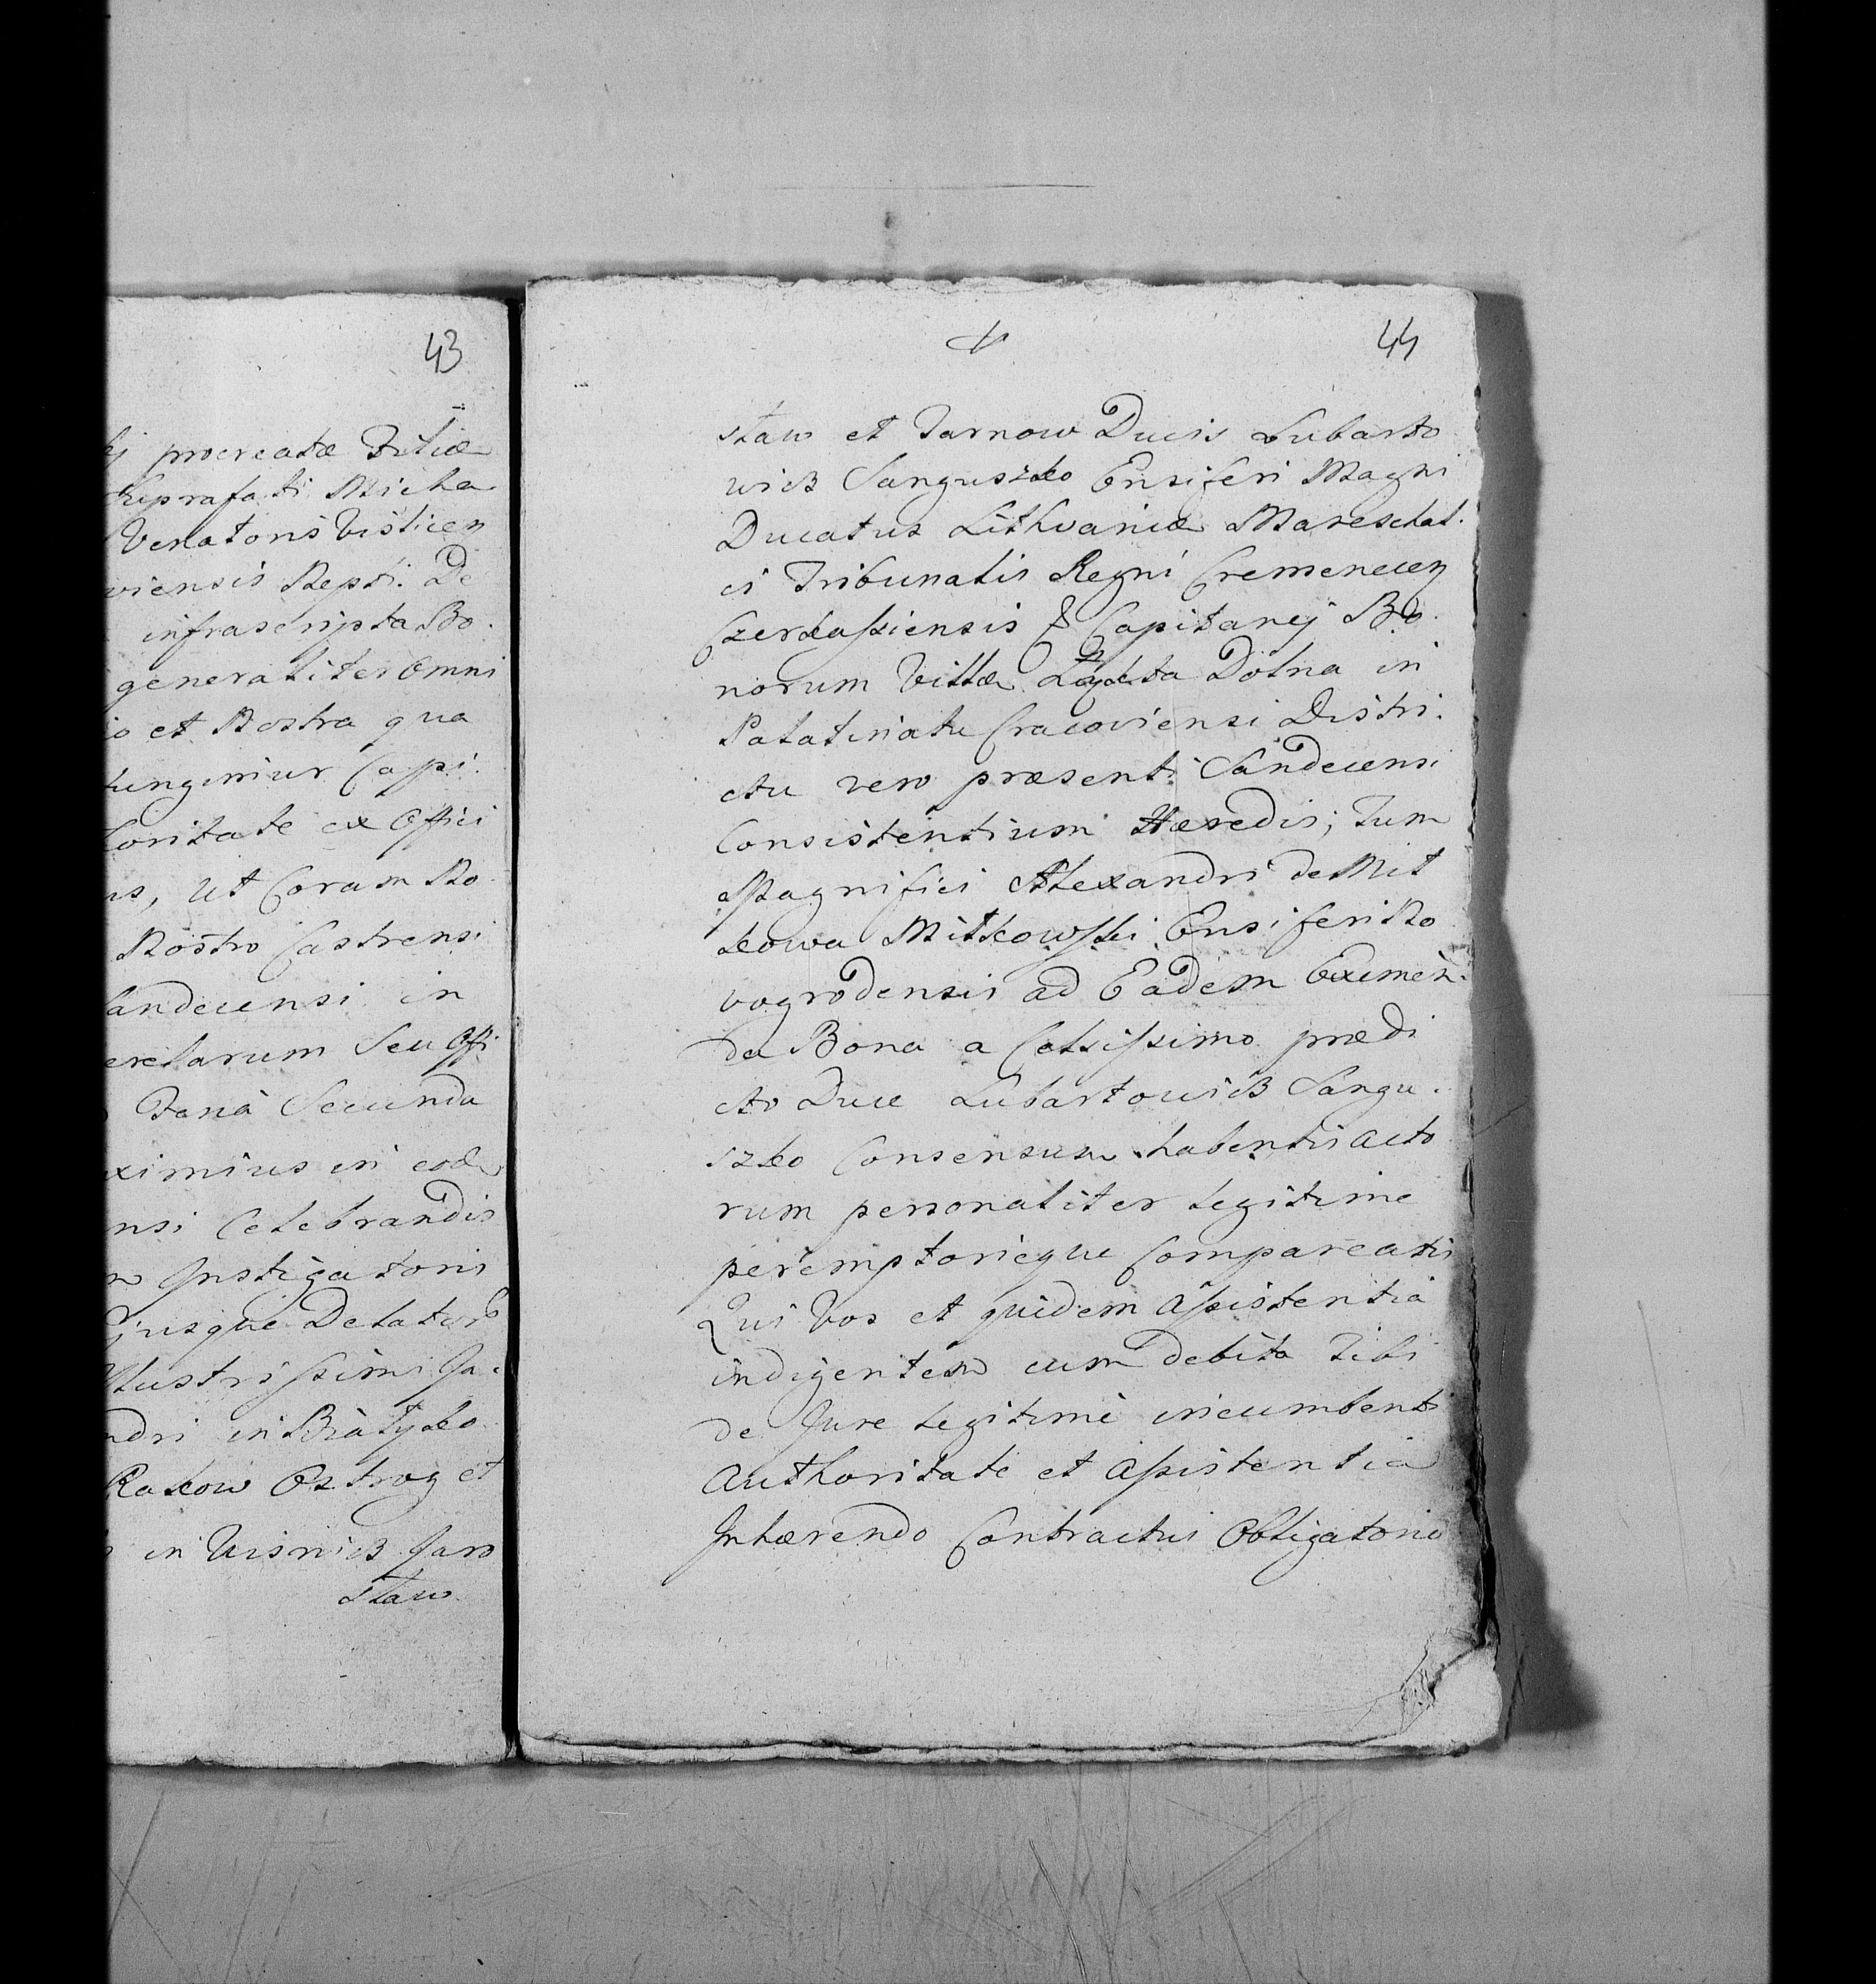 43
procreatæ Filiæ
suprafati Micha
Venatoris Visticen
viensis Nepti. De
infrascripta Bo.
generaliter omni
et Nostra qua
fungimur Capi.
toritate ex Offici
us, ut Coram No
Nostro Castrensi
andecensi in
erelarum Seu Offi
Fana Secunda
ximius in eodem
nsi Celebrandis
Instigatoris
Ejusque Delatoris
llustrissimi Ja.
ndri in Białyko
Rakow Ostrog et
in Wisnicz Jaro
staw
44
staw et Tarnow Ducis Lubarto
wicz Sanguszko Ensiferi Magni
Ducatus Lithvaniæ Mareschal.
ci Tribunalis Regni Cremenecen
Czerkassiensis & Capitanei Bo.
norum Villæ Dolna in
Palatinatu Cracoviensi Distri.
ctu vero præsenti Sandecensi
Consistentium Hæredis; Tum
Magnifici Alexandri de Mit
kowa Mitkowski Ensiferi No
vogrodensis ad Eadem Eximen.
da Bona a Celsissimo prædi
cto Duce Lubartowicz Sangu.
szko Consensum habentis Acto
rum personaliter legitime
peremptorieque Compareatis
Qui Vos et quidem Assistentia
indigentem cum debita Tibi
de Jure legitime incumbenti
Authoritate et Assistentia
Inhærendo Contractui Obligatorio